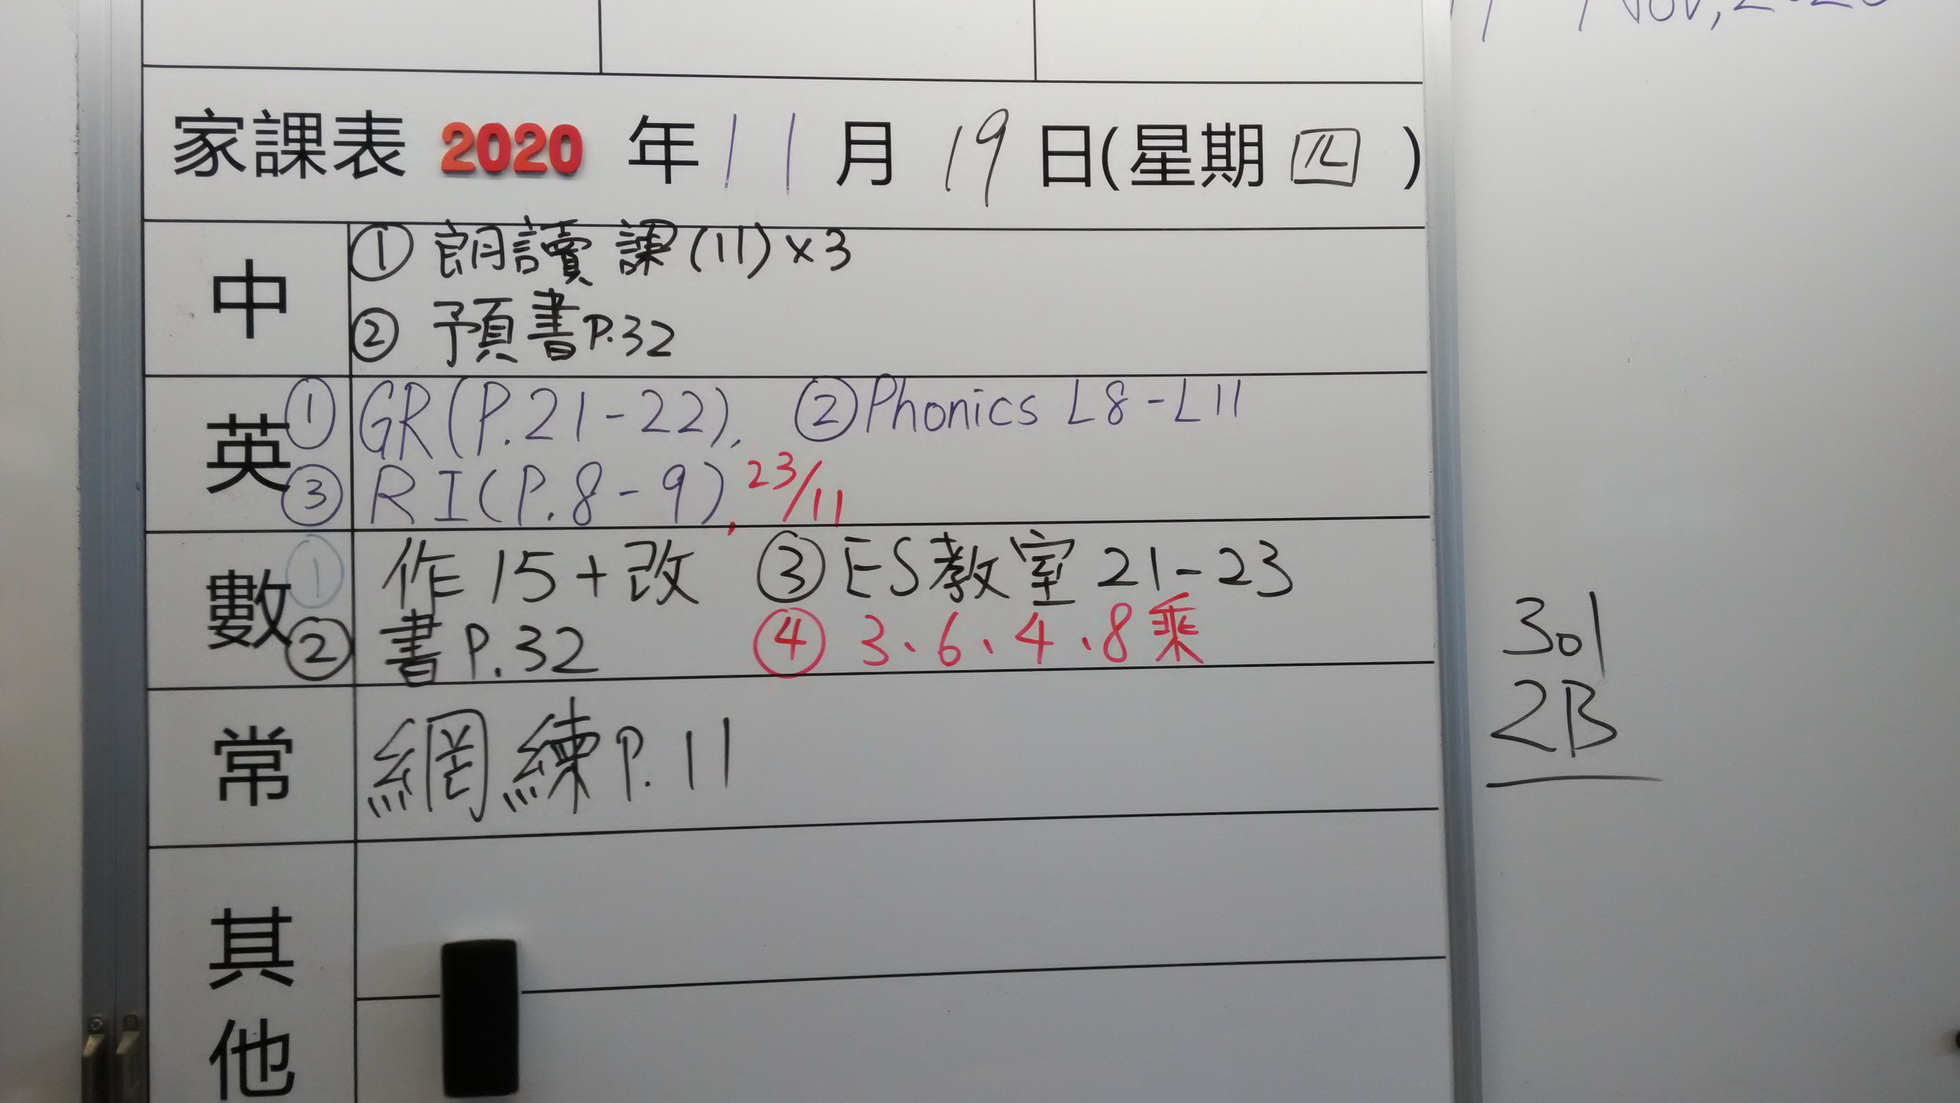 Nov, 2020
家課表 2020 年 11 月 19 日(星期 四 )
中
① 朗讀 課(11)×3
② 預書P.32
英
① GR(P.21-22), ② Phonics L8-L11
③ RI(P.8-9), 23/11
數
① 作15+改 ③ ES教室 21-23
② 書P.32 ④ 3、6、4、8乘
常
網練P.11
其他
301
2B